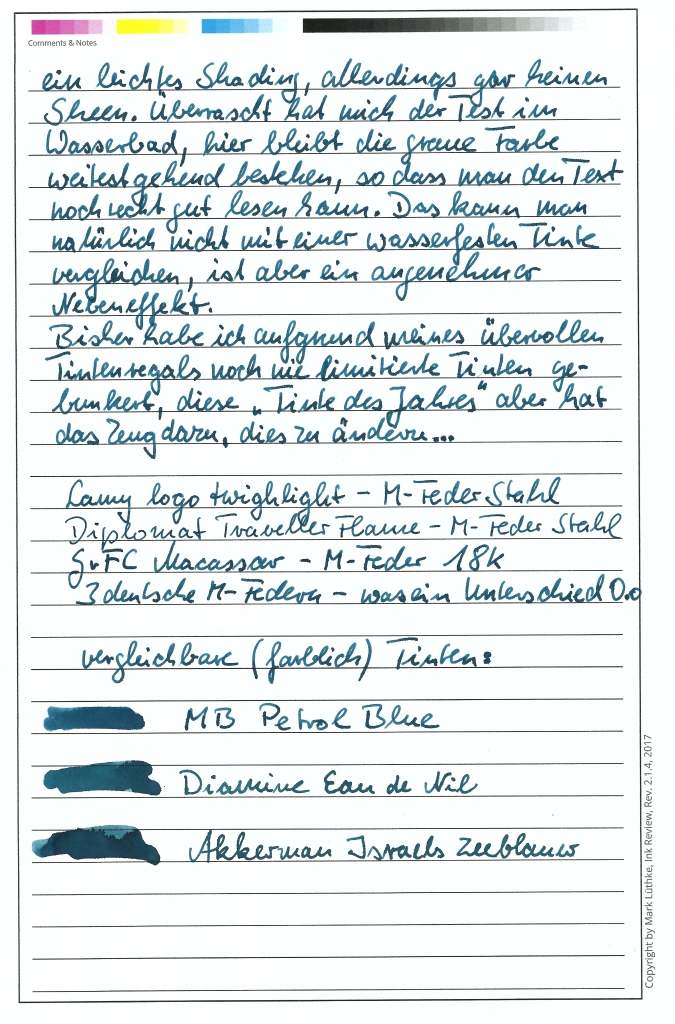 Comments & Notes
ein leichtes Shading, allerdings gar keinen
Sheen. Überrascht hat mich der Test im
Wasserbad, hier bleibt die graue Farbe
weitestgehend bestehen, so dass man den Text
noch recht gut lesen kann. Das kann man
natürlich nicht mit einer wasserfesten Tinte
vergleichen, ist aber ein angenehmer
Nebeneffekt.
Bisher habe ich aufgrund meines übervollen
Tintenregals noch nie limitierte Tinten ge-
bunkert, diese „Tinte des Jahres" aber hat
das Zeug dazu, dies zu ändern...
Lamy logo twighlight – M-Feder Stahl
Diplomat Traveller Flame – M-Feder Stahl
GvFC Macassar – M-Feder 18K
3 deutsche M-Federn – was ein Unterschied O.o
vergleichbare (farblich) Tinten:
MB Petrol Blue
Diamine Eau de Nil
Akkerman Israels Zeeblauw
Copyright by Mark Lüthke, Ink Review, Rev. 2.1.4, 2017